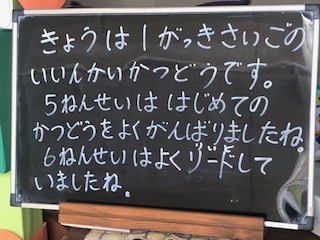 きょうは1がっきさいごの
いいんかいかつどうです。
5ねんせいは はじめての
かつどうをよくがんばりましたね。
6ねんせいはよくリードして
いましたね。